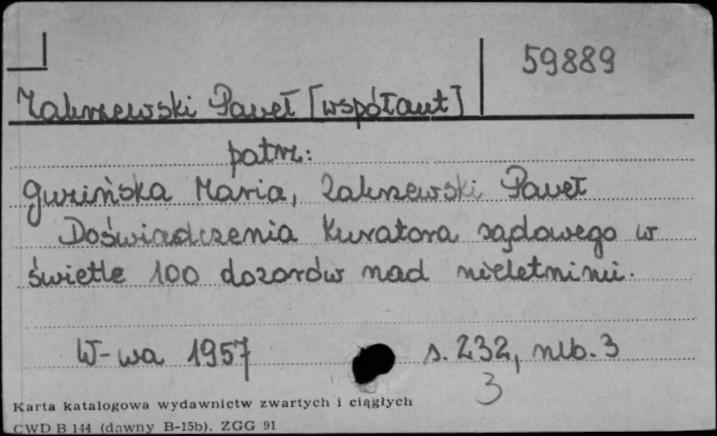 59889
Zakrzewski Paweł [współaut]
patrz:
Guzińska Maria, Zakrzewski Paweł
Doświadczenia kuratora sądowego w
świetle 100 dozorów nad nieletnimi.
W-wa 1957 s. 232, nlb. 3
3
Karta katalogowa wydawnictw zwartych i ciągłych
CWD B 144 (dawny B-15b). ZGG 91